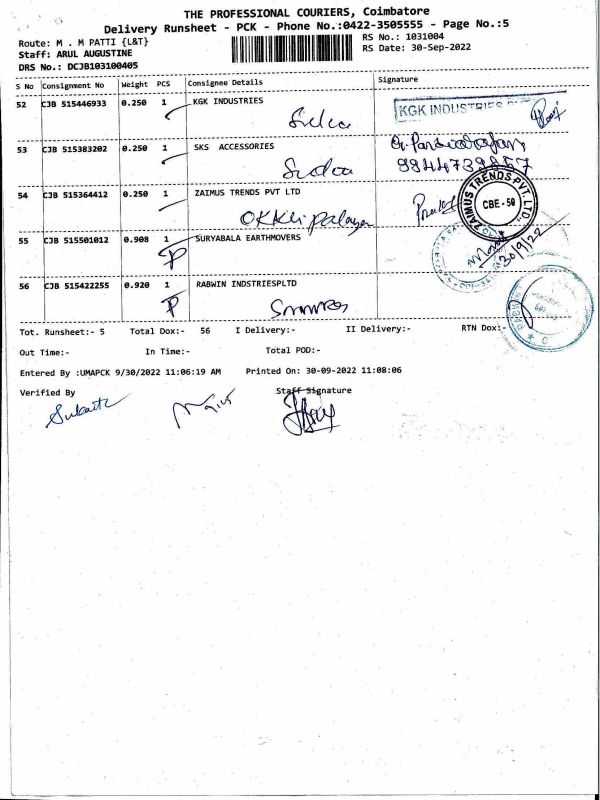 THE PROFESSIONAL COURIERS, Coimbatore
Delivery Runsheet - PCK - Phone No.:0422-3505555 - Page No.:5
Route: M . M PATTI {L&T}
RS No.: 1031004
Staff: ARUL AUGUSTINE
RS Date: 30-Sep-2022
DRS No.: DCJB103100405
S No Consignment No Weight PCS Consignee Details Signature
52 CJB 515446933 0.250 1 KGK INDUSTRIES
KGK INDUSTRIES
53 CJB 515383202 0.250 1 SKS ACCESSORIES
54 CJB 515364412 0.250 1 ZAIMUS TRENDS PVT LTD
ZAIMUS TRENDS PVT. LTD.
CBE-50
55 CJB 515501012 0.908 1 SURYABALA EARTHMOVERS
P
30/9/22
56 CJB 515422255 0.920 1 RABWIN INDSTRIESPLTD
P
Tot. Runsheet:- 5 Total Dox:- 56 I Delivery:- II Delivery:- RTN Dox:-
Out Time:- In Time:- Total POD:-
Entered By :UMAPCK 9/30/2022 11:06:19 AM Printed On: 30-09-2022 11:08:06
Verified By Staff Signature